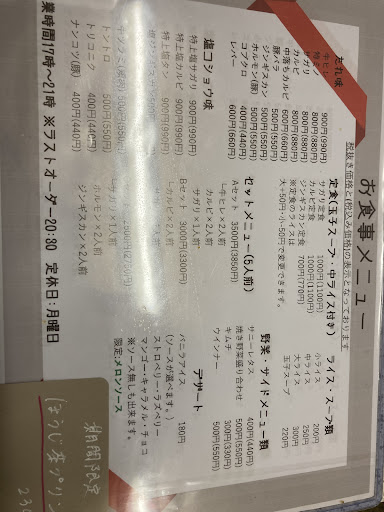 お食事メニュー
税抜き価格と(税込み価格)の表示となっております
たれ味
牛ヒレ 900(990円)
800(880円)
サガリ 800(880円)
カルビ 800(880円)
中落ちカルビ 600(660円)
豚バラ 500(550円)
ジンギスカン 500(550円)
ホルモン(豚) 500(550円)
コブクロ 400(440円)
レバー 600(660円)
塩コショウ味
特上塩サガリ 900(990円)
特上塩カルビ 900(990円)
特上塩タン 900(990円)
トントロ 500(550円)
トリコニク 400(440円)
ナンコツ(豚) 400円(440円)
定食(玉子スープ・中ライス付き)
サガリ定食 1000(1100円)
カルビ定食 1000(1100円)
ジンギスカン定食 700(770円)
※定食のライスは
大+50円・小-50円で変更できます。
セットメニュー(5人前)
Aセット 3500円(3850円)
└牛ヒレ×2人前
カルビ×2人前
サガリ×1人前
Bセット 3000円(3300円)
└カルビ×2人前
└サガリ×1人前
ホルモン×2人前
ジンギスカン×2人前
ライス・スープ類
小ライス 200円
中ライス 250円
大ライス 300円
玉子スープ 220円
野菜・サイドメニュー類
サニーレタス 400円(440円)
焼き野菜盛り合わせ 500円(550円)
キムチ 300円(330円)
ウインナー 500円(550円)
デザート
バニラアイス 180円
(ソースが選べます。)
ストロベリー・ラズベリー
マンゴー・キャラメル・チョコ
※ソース無しも出来ます。
限定:メロンソース
業時間17時〜21時 ※ラストオーダー20:30 定休日:月曜日
期間限定
ほうじ茶プリン